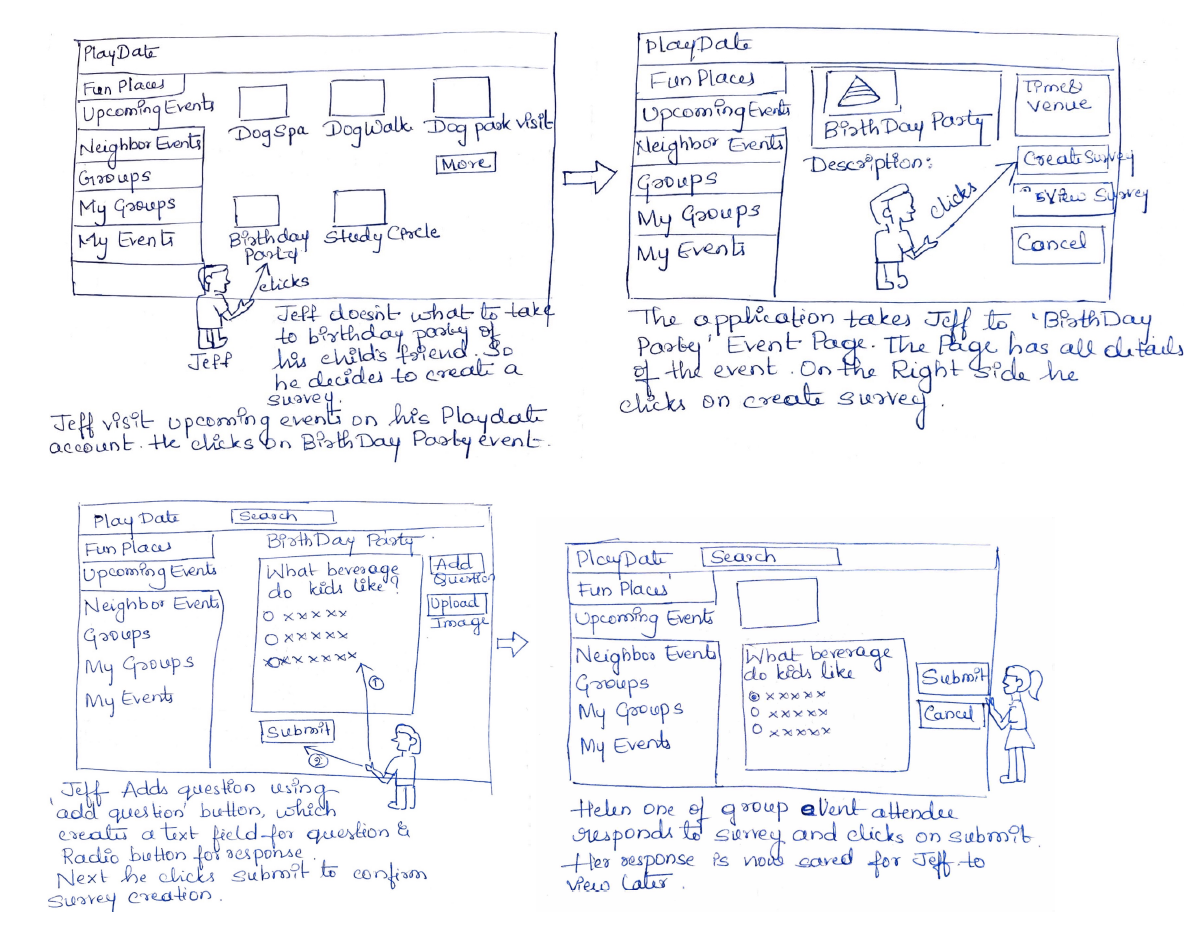 PlayDate
Fun Places
Upcoming Events
Neighbor Events
Groups
My Groups
My Events
DogSpa
DogWalk
Dog park visit
More
Birthday
Party
Study Circle
clicks
Jeff
Jeff doesn't what to take
to birthday party of
his child's friend. So
he decides to create a
survey.
Jeff visit upcoming events on his Playdate
account. He clicks on BirthDay Party event.
PlayDate
Fun Places
Upcoming Events
Neighbor Events
Groups
My Groups
My Events
BirthDay Party
Description:
Time &
Venue
Create Survey
View Survey
Cancel
clicks
The application takes Jeff to 'BirthDay
Party' Event Page. The Page has all details
of the event. On the Right side he
clicks on create survey.
PlayDate
Search
Fun Places
Upcoming Events
Neighbor Events
Groups
My Groups
My Events
BirthDay Party
What beverage
do kids like?
O xxxxx
O xxxxx
O xxxxxx
Add
Question
Upload
Image
1
Submit
2
Jeff Adds question using
'add question' button, which
creates a text field for question &
Radio button for response.
Next he clicks submit to confirm
survey creation.
PlayDate
Search
Fun Places
Upcoming Events
Neighbor Events
Groups
My Groups
My Events
What beverage
do kids like
xxxxx
O xxxxx
O xxxxx
Submit
Cancel
Helen one of group event attendee
responds to survey and clicks on submit.
Her response is now saved for Jeff to
view later.